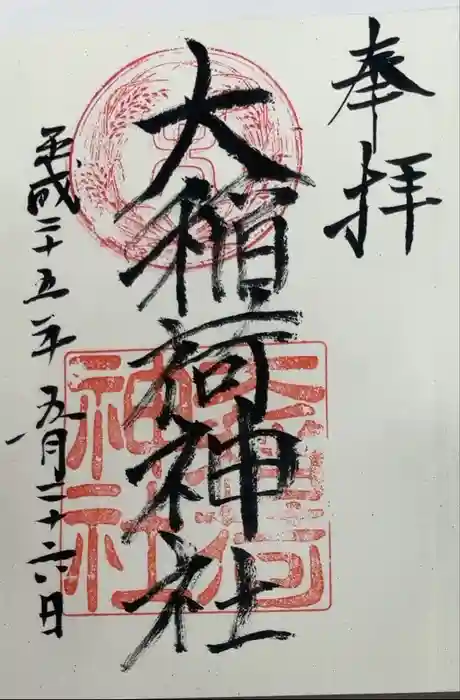 奉拝
大稲荷神社
平成二十五年五月二十六日
大稲荷神社